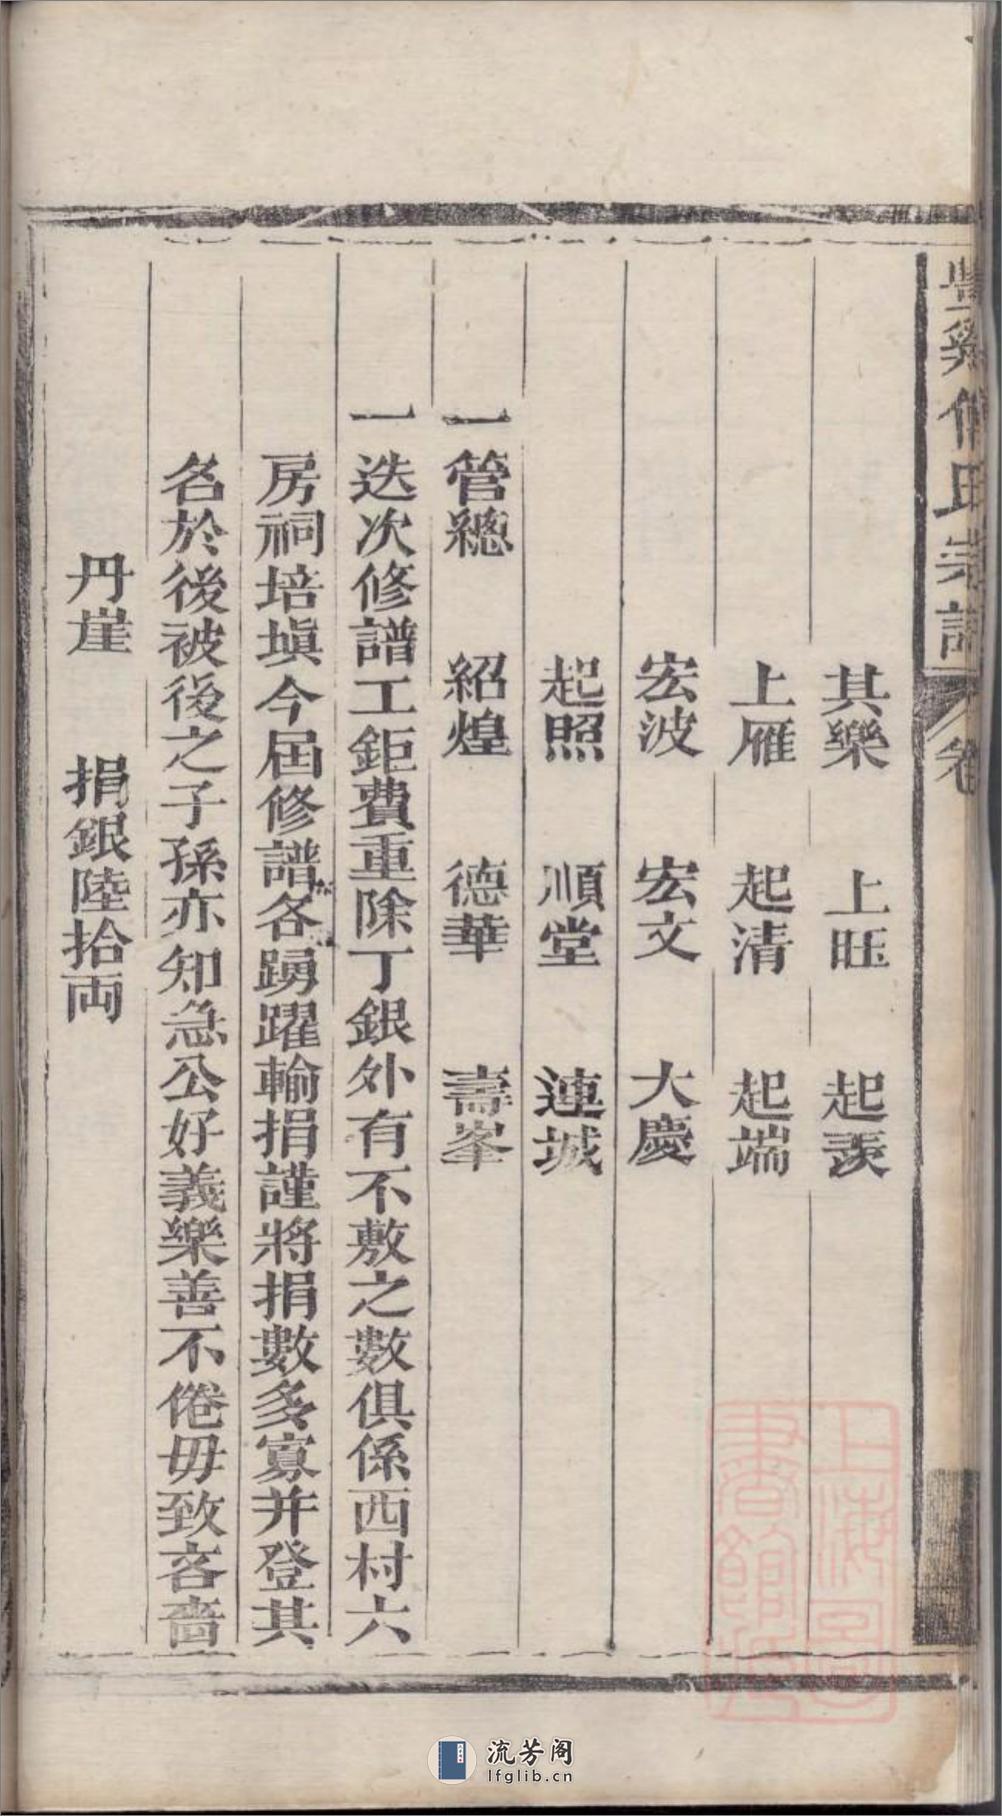 豐溪傅氏宗譜 卷
其樂 上旺 起羨
上雁 起清 起端
宏波 宏文 大慶
起照 順堂 連城
一管總 紹煌 德華 壽峯
一迭次修譜工鉅費重除丁銀外有不敷之數俱係西村六
房祠培塡今屆修譜各踴躍輸捐謹將捐數多寡并登其
名於後被後之子孫亦知急公好義樂善不倦毋致吝嗇
丹崖 捐銀陸拾両
上海圖
書館藏
流芳阁
lfglib.cn